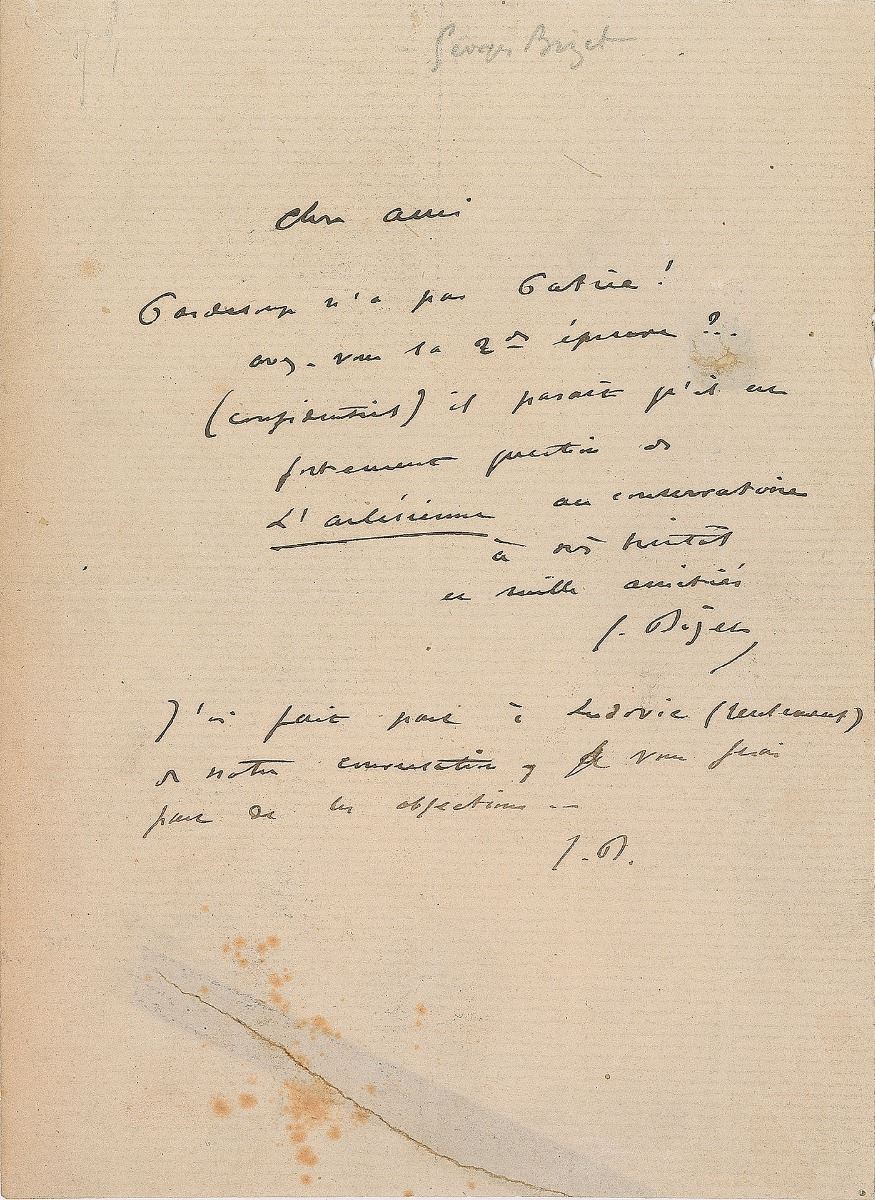 Georges Bizet
Cher ami
Pasdeloup n'a pas Patrie!
avez-vous la 2de épreuve ?..
(confidentiel) il parait qu'il est
fortement question de
L'arlésienne au conservatoire
à bientôt
et mille amitiés
G. Bizet
J'ai fait part à Ludovic (seulement)
de notre conversation, je vous ferai
part de ses objections --
G. B.